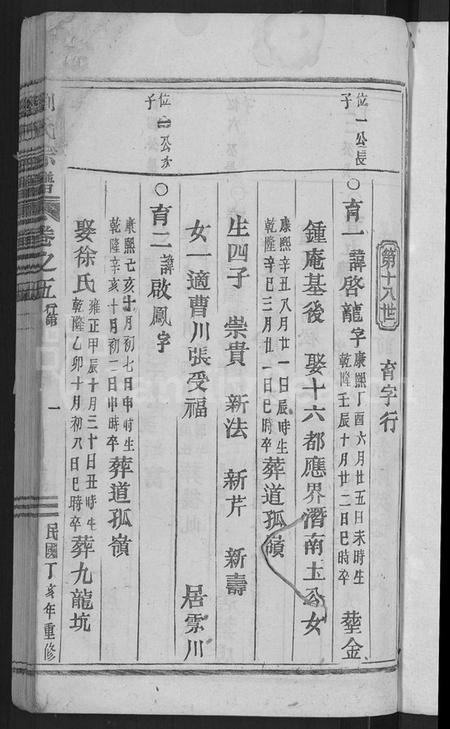 第十八世
育字行
位一公長子
○育一諱啓龍字
康熙丁酉六月廿五日未時生
乾隆壬辰十月廿二日巳時卒
葬金
鍾庵基後 娶十六都應界潛南土公女
康熙辛丑八月廿一日辰時生
乾隆辛巳三月廿一日巳時卒
葬道孤嶺
生四子 崇貴 新法 新芹 新壽
女一適曹川張受福
居雰川
位一公次子
○育二諱啟鳳字
康熙己亥十月初七日申時生
乾隆辛亥十月初二日申時卒
葬道孤嶺
娶徐氏
雍正甲辰十月三十日丑時生
乾隆乙卯十月初八日巳時卒
葬九龍坑
劉氏宗譜
卷之五
一
民國丁亥年重修